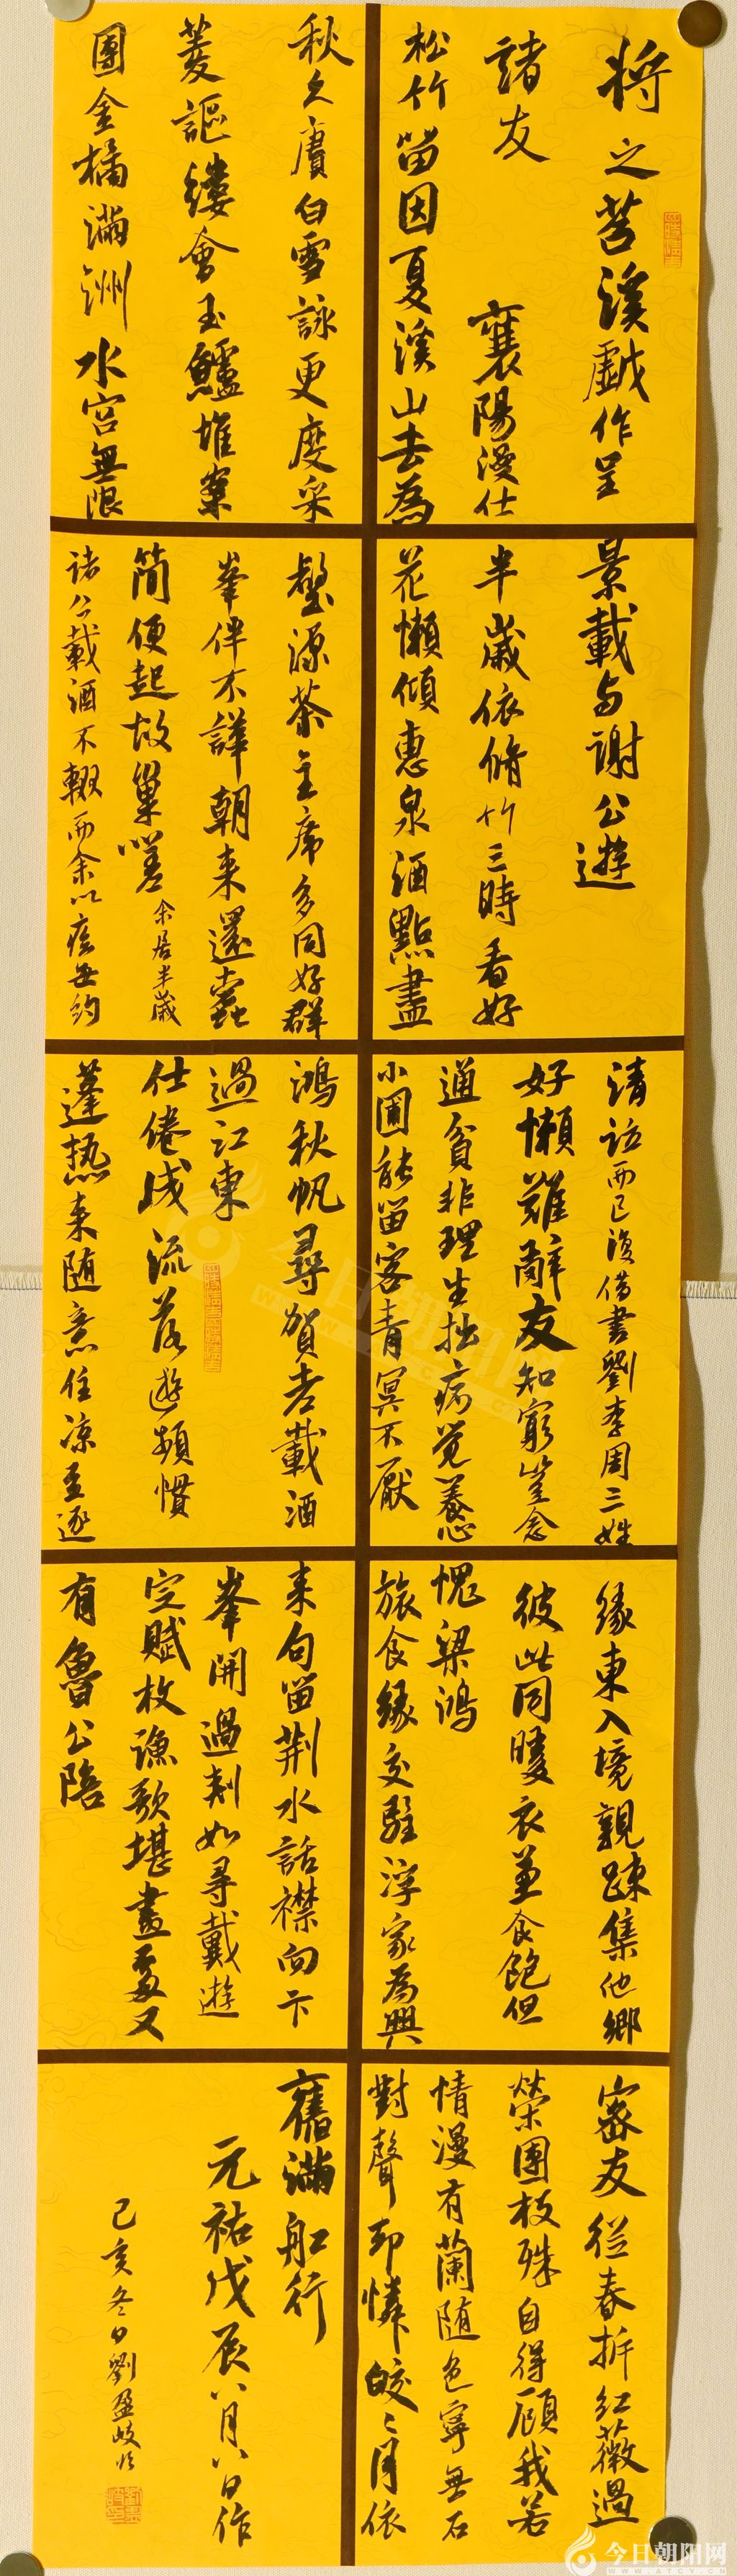 将之苕溪戯作呈
諸友 襄陽漫仕
松竹留因夏溪山去為
秋久賡白雪詠更度采
菱謳縷會玉鱸堆案
團金橘滿洲水宮無限
景載与謝公遊
半歲依脩竹三時看好
花懶傾惠泉酒點盡
壑源茶主席多同好群
峯伴不譁朝来還蠹
簡便起故巢嗟 余居半歲
諸公載酒不輟而余以疾每約
清話而已復借書劉李周三姓
好懶難辭友知窮豈念
通貧非理生拙病覺養心
小圃能留客青冥不厭
鴻秋帆尋賀老載酒
過江東
仕倦成流落遊頻慣
蓬热来随意住凉至逐
緣東入境親疎集他鄉
彼此同暖衣兼食飽但
愧梁鴻
旅食緣交駐浮家為興
来句留荆水話襟向卞
峯開過剡如尋戴遊
定賦枚漁歌堪畫處又
有魯公陪
密友從春拆紅薇過
榮團枝殊自得顧我若
情漫有蘭随色寧無石
對聲却憐皎〻月依
舊滿舡行
元祐戊辰八月八日作
己亥冬日劉盈岐临
今日朝阳网
WWW.ATCY.CN